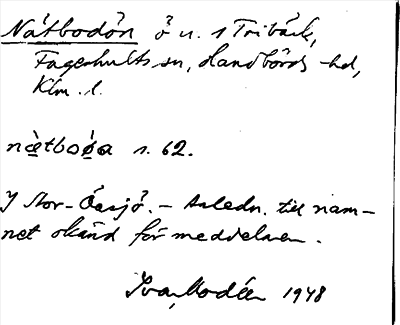 Nätbodön ö n. s Tribäck,
Fagerhults sn, Handbörds hd,
Klm. l.
nætboöa s. 62.
I Stor-Åsjö. – Anledn. till nam-
net okänd för meddelaren.
Ivar Modéer 1948